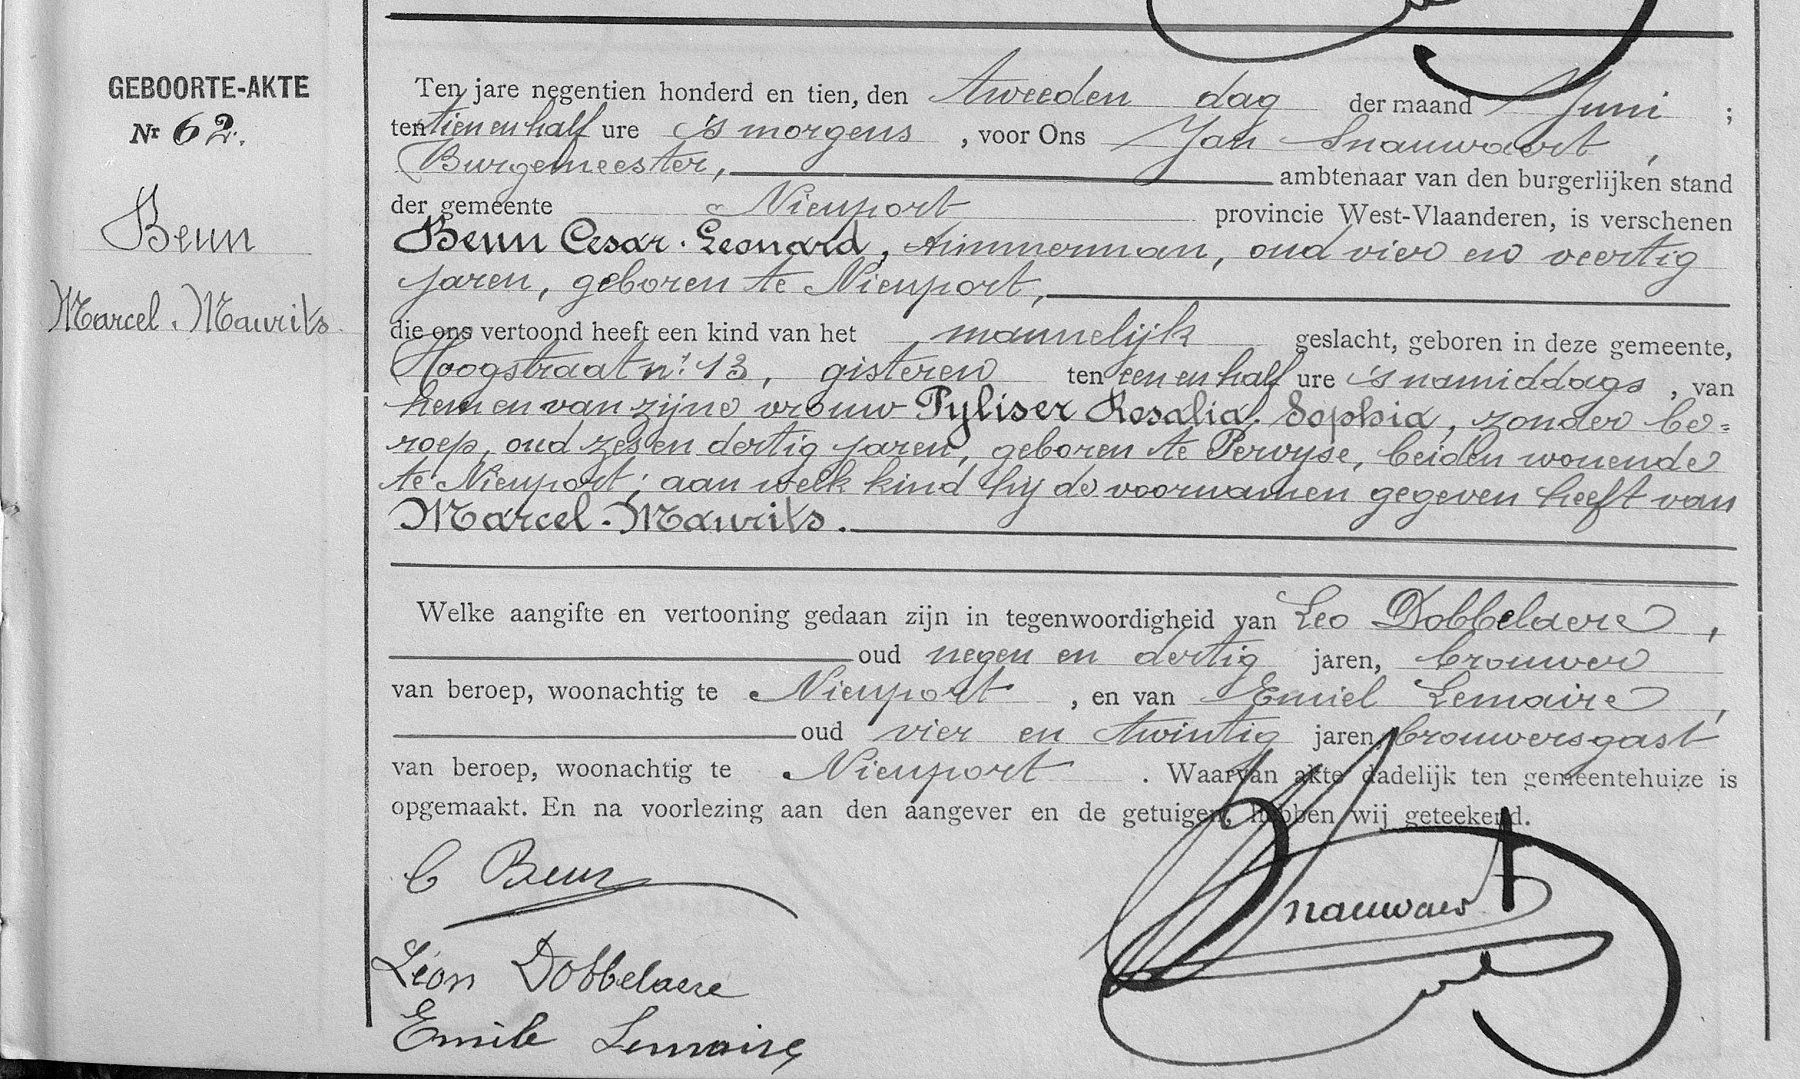 GEBOORTE-AKTE
Nr 62.
Beun
Marcel-Maurits
Ten jare negentien honderd en tien, den tweeden dag der maand Juni ;
ten tien en half ure 's morgens , voor Ons Jan Snauwaert ,
Burgemeester, ambtenaar van den burgerlijken stand
der gemeente Nieuport provincie West-Vlaanderen, is verschenen
Beun Cesar-Leonard, timmerman, oud vier en veertig
jaren, geboren te Nieuport,
die ons vertoond heeft een kind van het mannelijk geslacht, geboren in deze gemeente,
Hoogstraat nr 13, gisteren ten een en half ure 's namiddags , van
hem en van zijne vrouw Pyliser Rosalia-Sophia, zonder be=
roep, oud zes en dertig jaren, geboren te Pervyse, beiden wonende
te Nieuport; aan welk kind hij de voornamen gegeven heeft van
Marcel-Maurits.
Welke aangifte en vertooning gedaan zijn in tegenwoordigheid van Leo Dobbelaere ,
oud negen en dertig jaren, brouwer
van beroep, woonachtig te Nieuport , en van Emiel Lemaire ,
oud vier en twintig jaren, brouwersgast
van beroep, woonachtig te Nieuport . Waarvan akte dadelijk ten gemeentehuize is
opgemaakt. En na voorlezing aan den aangever en de getuigen, hebben wij geteekend.
C Beun
Léon Dobbelaere
Emile Lemaire
Snauwaert